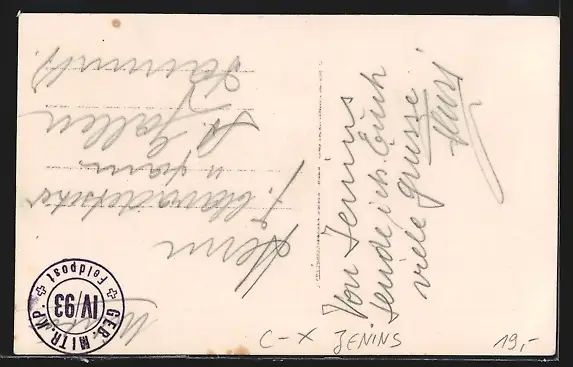 Von Jenins
sende ich Euch
viele Grüsse
Hans
Herrn
u. Fam.
St. Gallen
GEB. MITR. KP.
IV/93
Feldpost
C-X JENINS
19,-